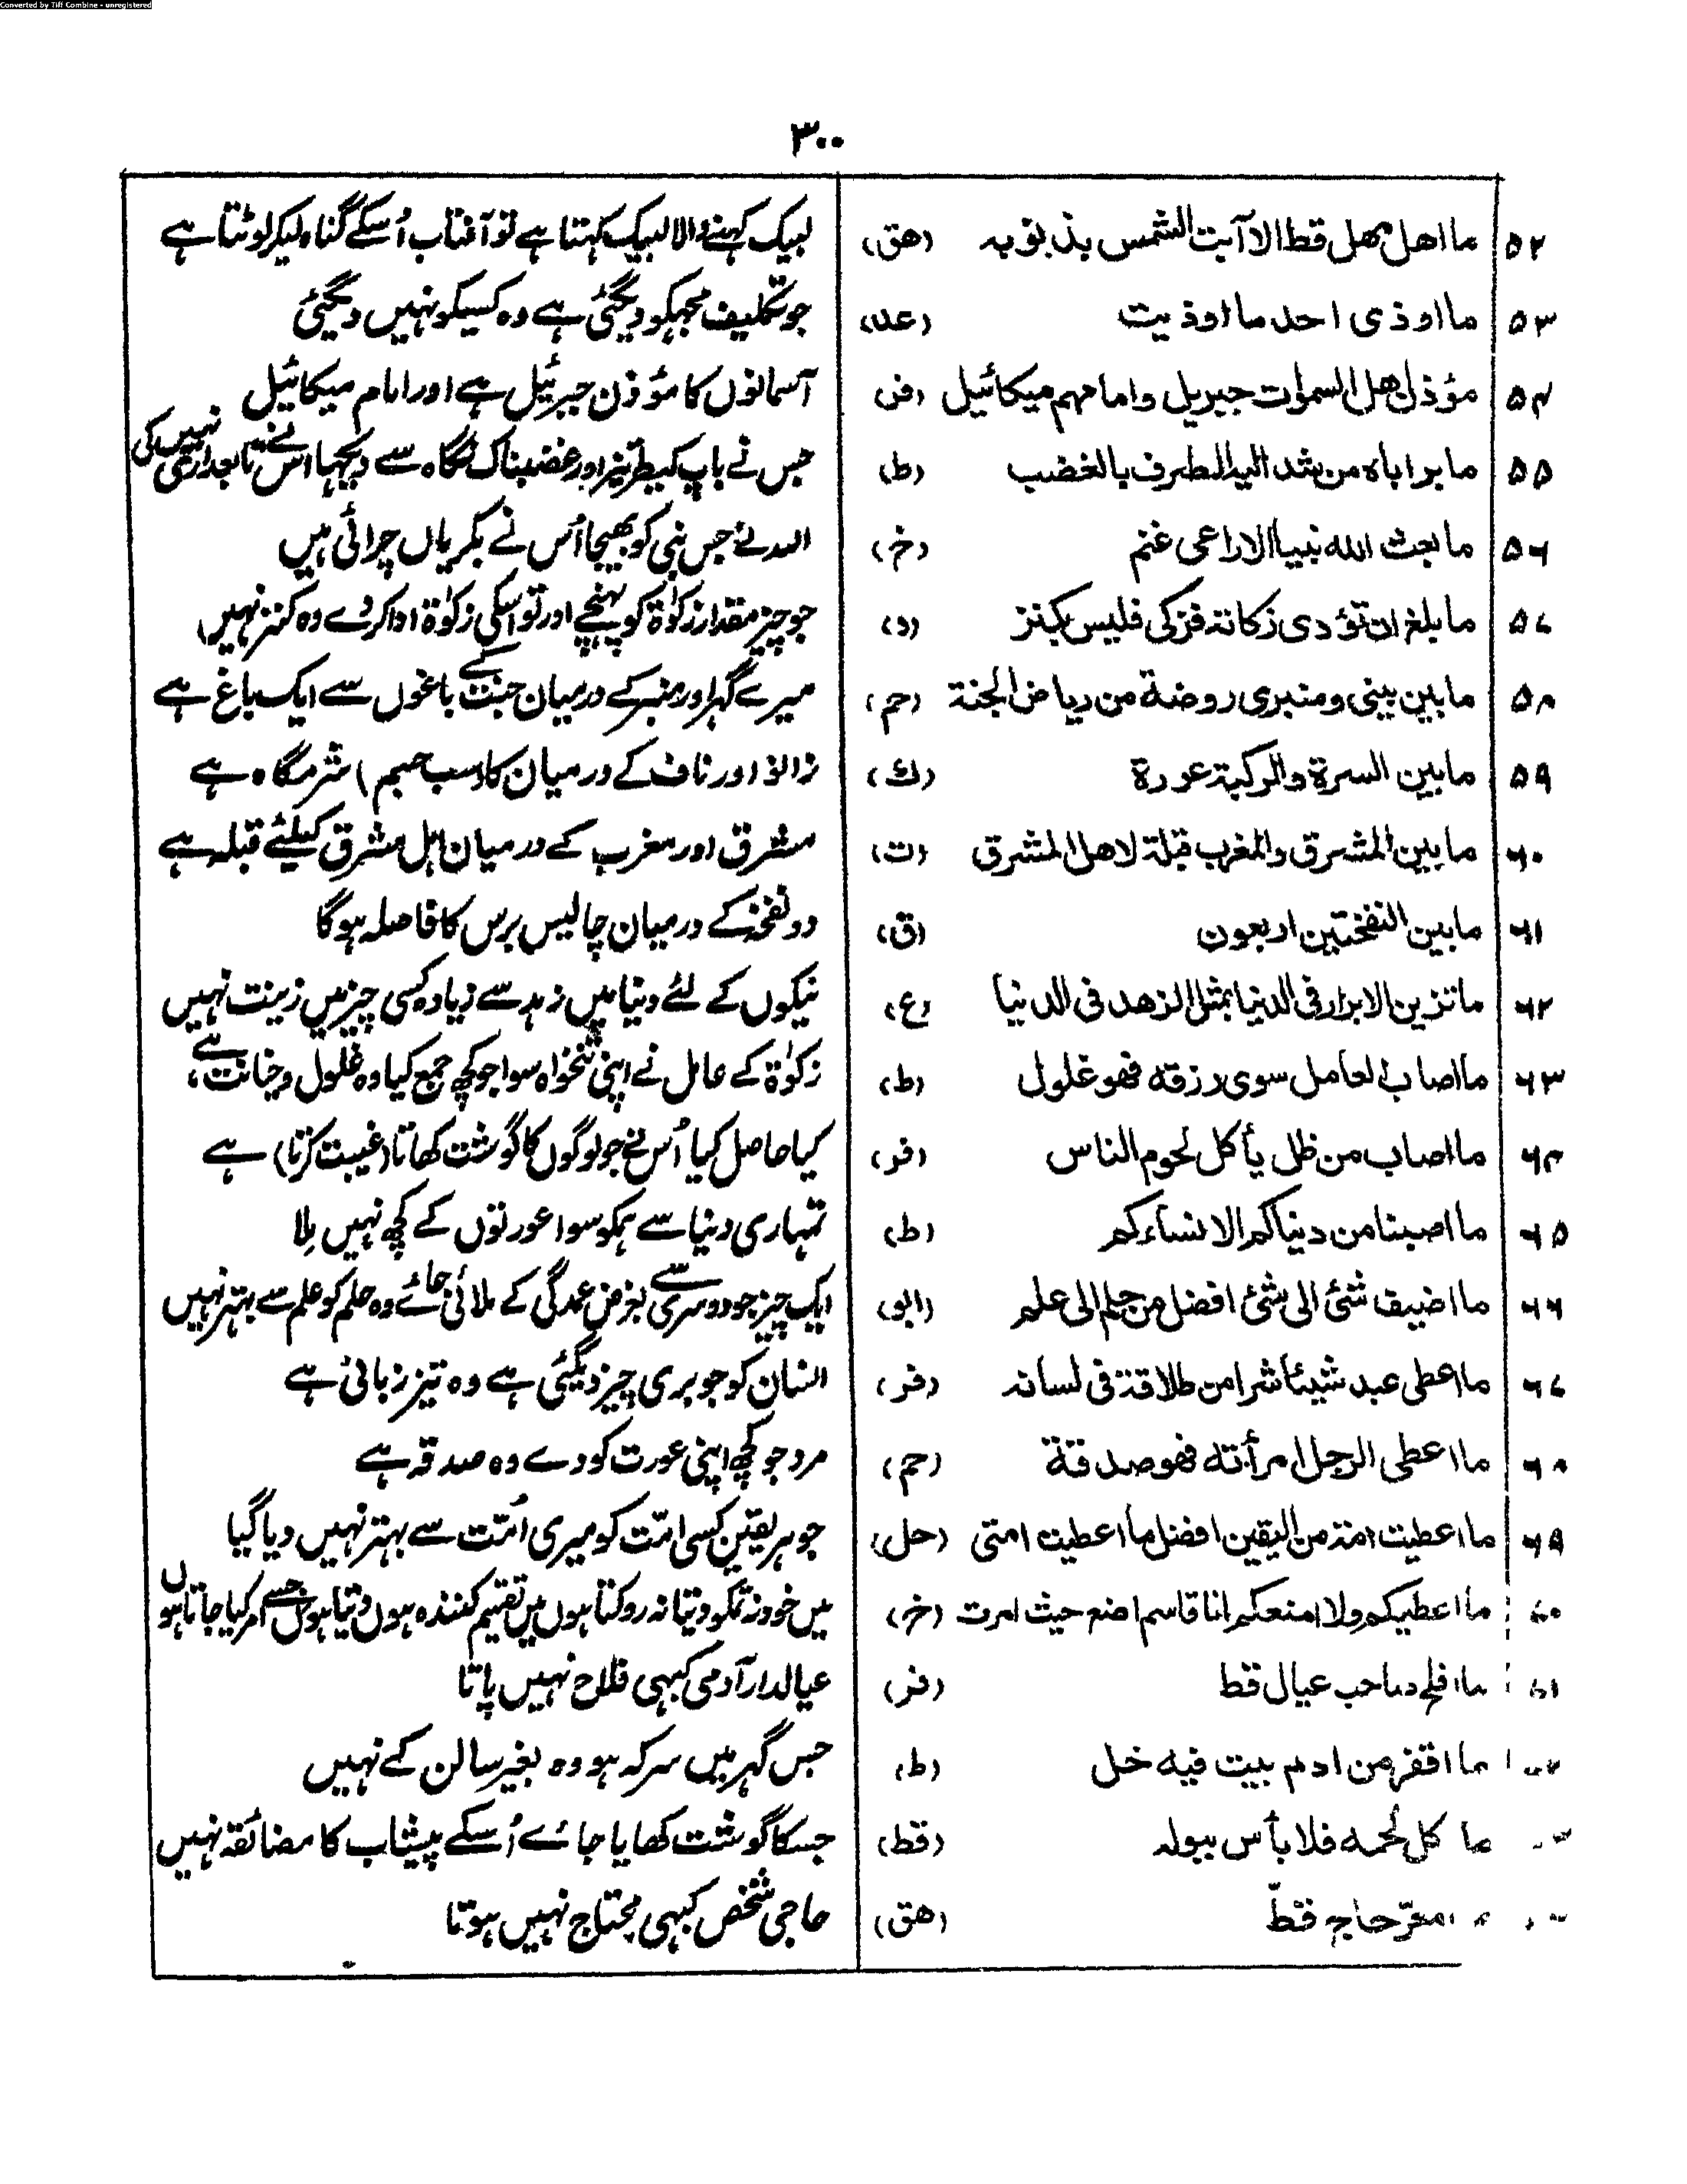 Converted by Tiff Combine - unregistered
۳۰۰
۵۲ ما اھل مھل قط الا آبت الشمس بذنوبہ (ھق) لبیک کہنے والا لبیک کہتا ہے تو آفتاب اُسکے گناہ لیکر لوٹتا ہے
۵۳ ما اوذی احد ما اوذیت (عد) جو تکلیف مجہکو دیگئی ہے وہ کسیکو نہیں دیگئی
۵۴ مؤذن اھل السموات جبریل وامامہم میکائیل (فر) آسمانوں کا مؤذن جبرئیل ہے اور امام میکائیل
۵۵ ما بر اباہ من شد الیہ الطرف بالغضب (ط) جس نے باپ کیطرف تیز اور غضبناک نگاہ سے دیکہا اس نے تابعداری نہیں کی
۵۶ ما بعث اللہ نبیا الا راعی غنم (خ) اللہ نے جس نبی کو بھیجا اُس نے بکریاں چرائی ہیں
۵۷ ما بلغ ان تؤدی زکاتہ فزکی فلیس بکنز (د) جو چیز مقدار زکوٰۃ کو پہنچے اور تو اسکی زکوٰۃ ادا کردے وہ کنز نہیں
۵۸ ما بین بیتی ومنبری روضة من ریاض الجنة (حم) میرے گہر اور منبر کے درمیان جنت کے باغوں سے ایک باغ ہے
۵۹ ما بین السرة والرکبة عورة (ک) زانو اور ناف کے درمیان کا (سب جسم) شرمگاہ ہے
۶۰ ما بین المشرق والمغرب قبلة لاھل المشرق (ت) مشرق اور مغرب کے درمیان اہل مشرق کیلئے قبلہ ہے
۶۱ ما بین النفختین اربعون (ق) دو نفخہ کے درمیان چالیس برس کا فاصلہ ہوگا
۶۲ ما تزین الابرار فی الدنیا بمثل الزھد فی الدنیا (ع) نیکوں کے لئے دنیا میں زہد سے زیادہ کسی چیز میں زینت نہیں
۶۳ ما اصاب العامل سوی رزقہ فھو غلول (ط) زکوٰۃ کے عامل نے اپنی تنخواہ سوا جو کچھ جمع کیا وہ غلول وخیانت ہے
۶۴ ما اصاب من ظل یأکل لحوم الناس (فر) کیا حاصل کیا اُس نے جو لوگوں کا گوشت کھاتا (غیبت کرتا) ہے
۶۵ ما اصبنا من دنیاکم الا نساءکم (ط) تمہاری دنیا سے ہمکو سوا عورتوں کے کچھ نہیں مِلا
۶۶ ما اضیف شئ الی شئ افضل من حلم الی علم (ابو) ایک چیز جو دوسری سے بغرض عمدگی کے ملائی جائے وہ حلم کو علم سے بہتر نہیں
۶۷ ما اعطی عبد شیئا شرا من طلاقة فی لسانہ (فر) انسان کو جو بری چیز دیگئی ہے وہ تیز زبانی ہے
۶۸ ما اعطی الرجل امرأتہ فھو صدقة (حم) مرد جو کچھ اپنی عورت کو دے وہ صدقہ ہے
۶۹ ما اعطیت امة من الیقین افضل ما اعطیت امتی (حل) جوہر یقین کسی امّت کو میری اُمّت سے بہتر نہیں دیا گیا
۷۰ ما اعطیکم ولا امنعکم انا قاسم اضع حیث امرت (خ) میں خود نہ تمکو دیتا نہ روکتا ہوں میں تقسیم کنندہ ہوں دیتا ہوں جسے امر کیا جاتا ہوں
۷۱ ما افلح صاحب عیال قط (فر) عیالدار آدمی کبہی فلاح نہیں پاتا
ما اقفر من ادم بیت فیہ خل (ط) جس گہر میں سرکہ ہو وہ بغیر سالن کے نہیں
ما کل لحمہ فلا بأس ببولہ (قط) جسکا گوشت کھایا جائے اُسکے پیشاب کا مضائقہ نہیں
امعرّ حاج قطّ (ھق) حاجی شخص کبہی محتاج نہیں ہوتا